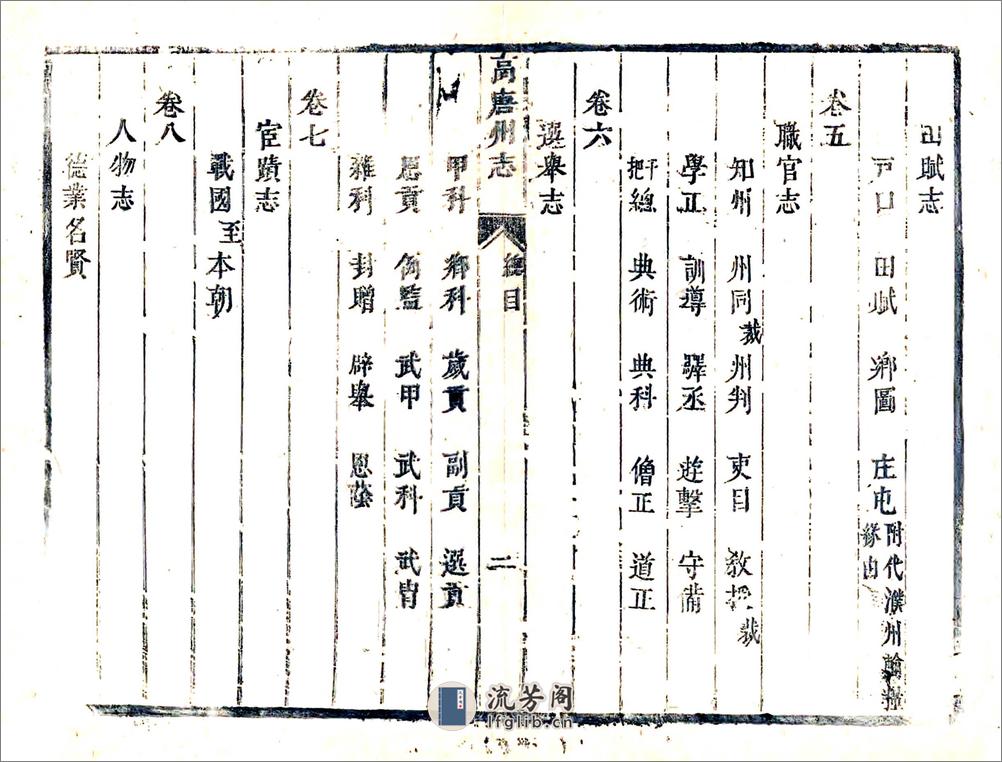 田賦志
戶口 田賦 鄉圖 庄屯附代濮州輸糧緣由
卷五
職官志
知州 州同裁 州判 吏目 教授裁
學正 訓導 驛丞 遊擊 守備
千把總 典術 典科 僧正 道正
卷六
選舉志
甲科 鄉科 歲貢 副貢 選貢
高唐州志 總目 二
恩貢 例監 武甲 武科 武胄
雜科 封贈 辟舉 恩蔭
卷七
宦蹟志
戰國至本朝
卷八
人物志
德業名賢
流芳阁
lfglib.cn